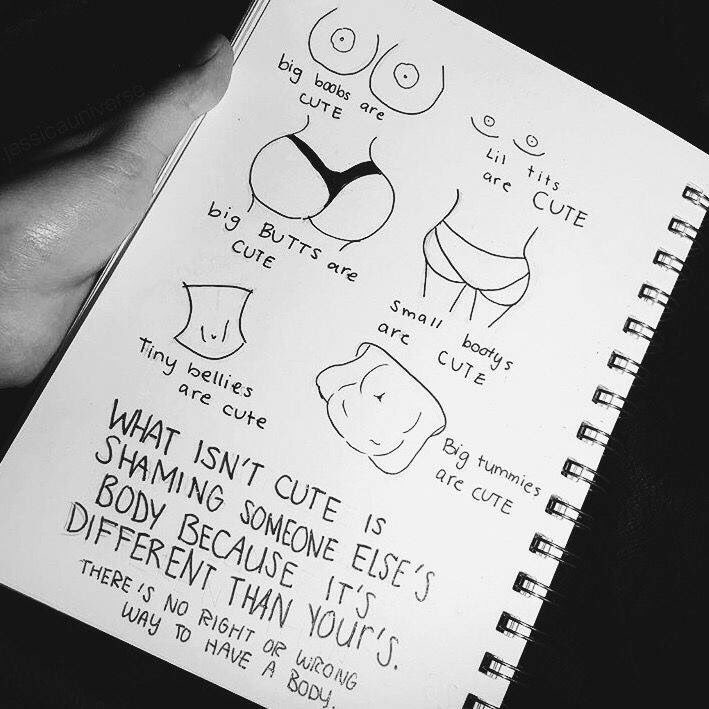 big boobs are
CUTE
Lil tits
are CUTE
big BUTTS are
CUTE
Small bootys
are CUTE
Tiny bellies
are cute
Big tummies
are CUTE
WHAT ISN'T CUTE IS
SHAMING SOMEONE ELSE'S
BODY BECAUSE IT'S
DIFFERENT THAN YOUR'S.
THERE IS NO RIGHT OR WRONG
WAY TO HAVE A BODY.
jessicauniverse